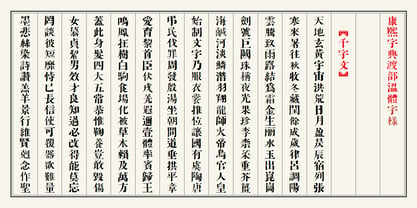 康熙字典渡部溫體字樣
【千字文】
天地玄黃宇宙洪荒日月盈昃辰宿列張
寒來暑往秋收冬藏閏餘成歲律呂調陽
雲騰致雨露結爲霜金生麗水玉出崑崗
劍號巨闕珠稱夜光果珍李柰菜重芥薑
海鹹河淡鱗潛羽翔龍師火帝鳥官人皇
始制文字乃服衣裳推位讓國有虞陶唐
弔民伐罪周發殷湯坐朝問道垂拱平章
愛育黎首臣伏戎羌遐邇壹體率賓歸王
鳴鳳在樹白駒食場化被草木賴及萬方
蓋此身髮四大五常恭惟鞠養豈敢毀傷
女慕貞絜男效才良知過必改得能莫忘
罔談彼短靡恃己長信使可覆器欲難量
墨悲絲染詩讚羔羊景行維賢剋念作聖